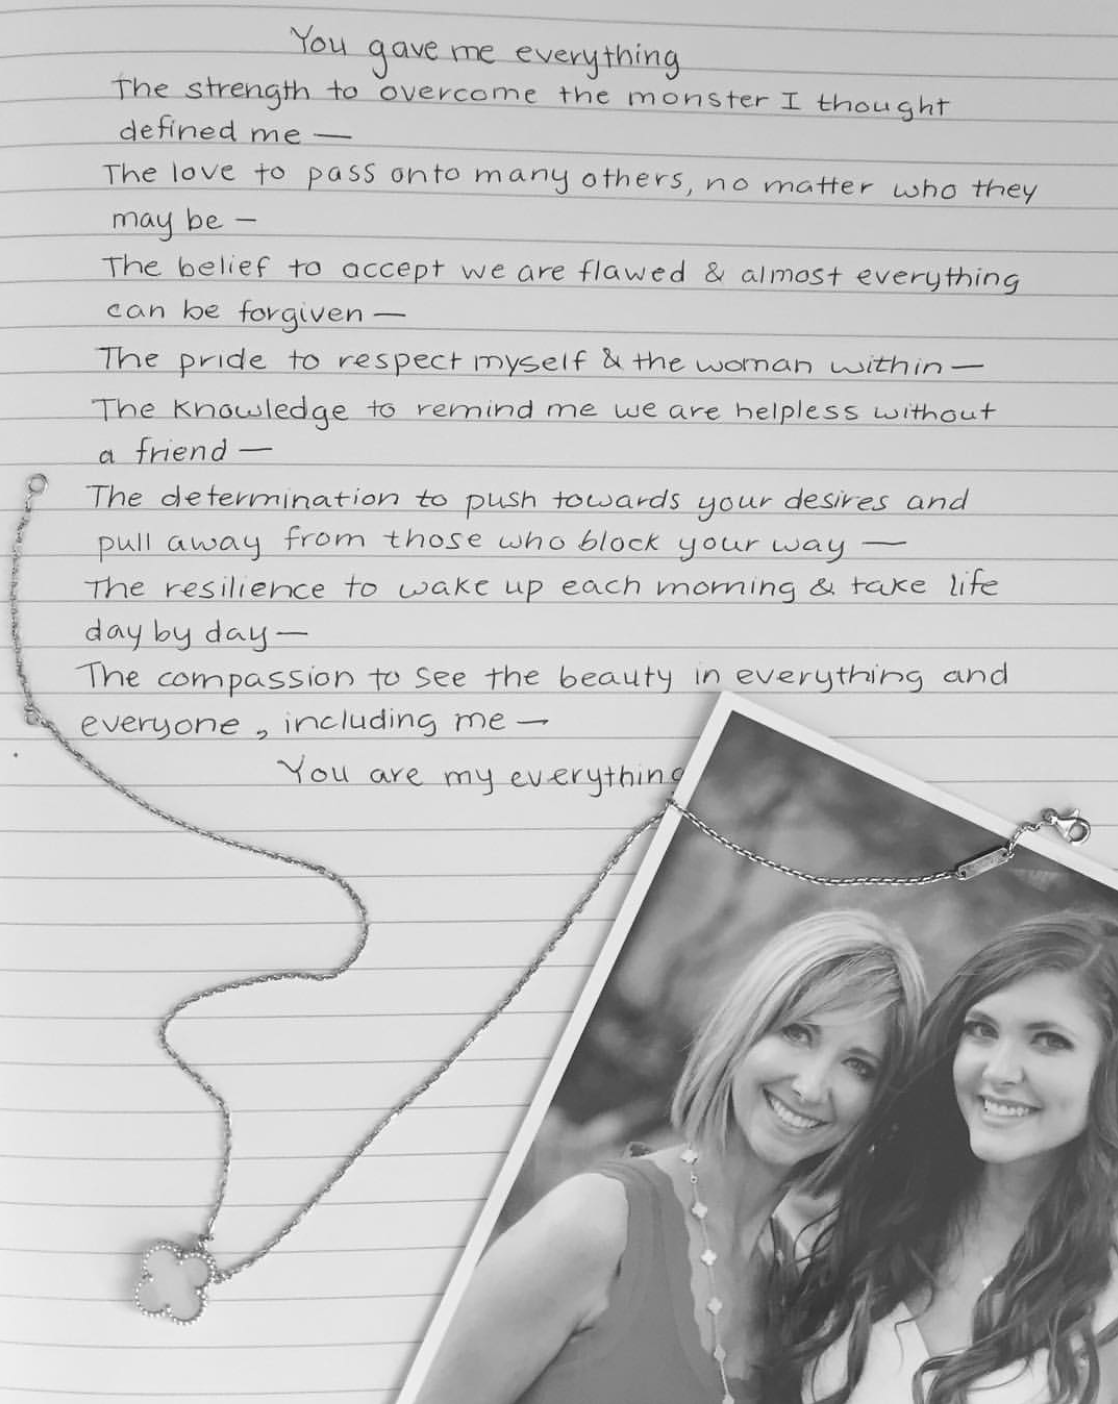 You gave me everything
The strength to overcome the monster I thought
defined me —
The love to pass onto many others, no matter who they
may be —
The belief to accept we are flawed & almost everything
can be forgiven —
The pride to respect myself & the woman within —
The knowledge to remind me we are helpless without
a friend —
The determination to push towards your desires and
pull away from those who block your way —
The resilience to wake up each morning & take life
day by day —
The compassion to see the beauty in everything and
everyone, including me —
You are my everything